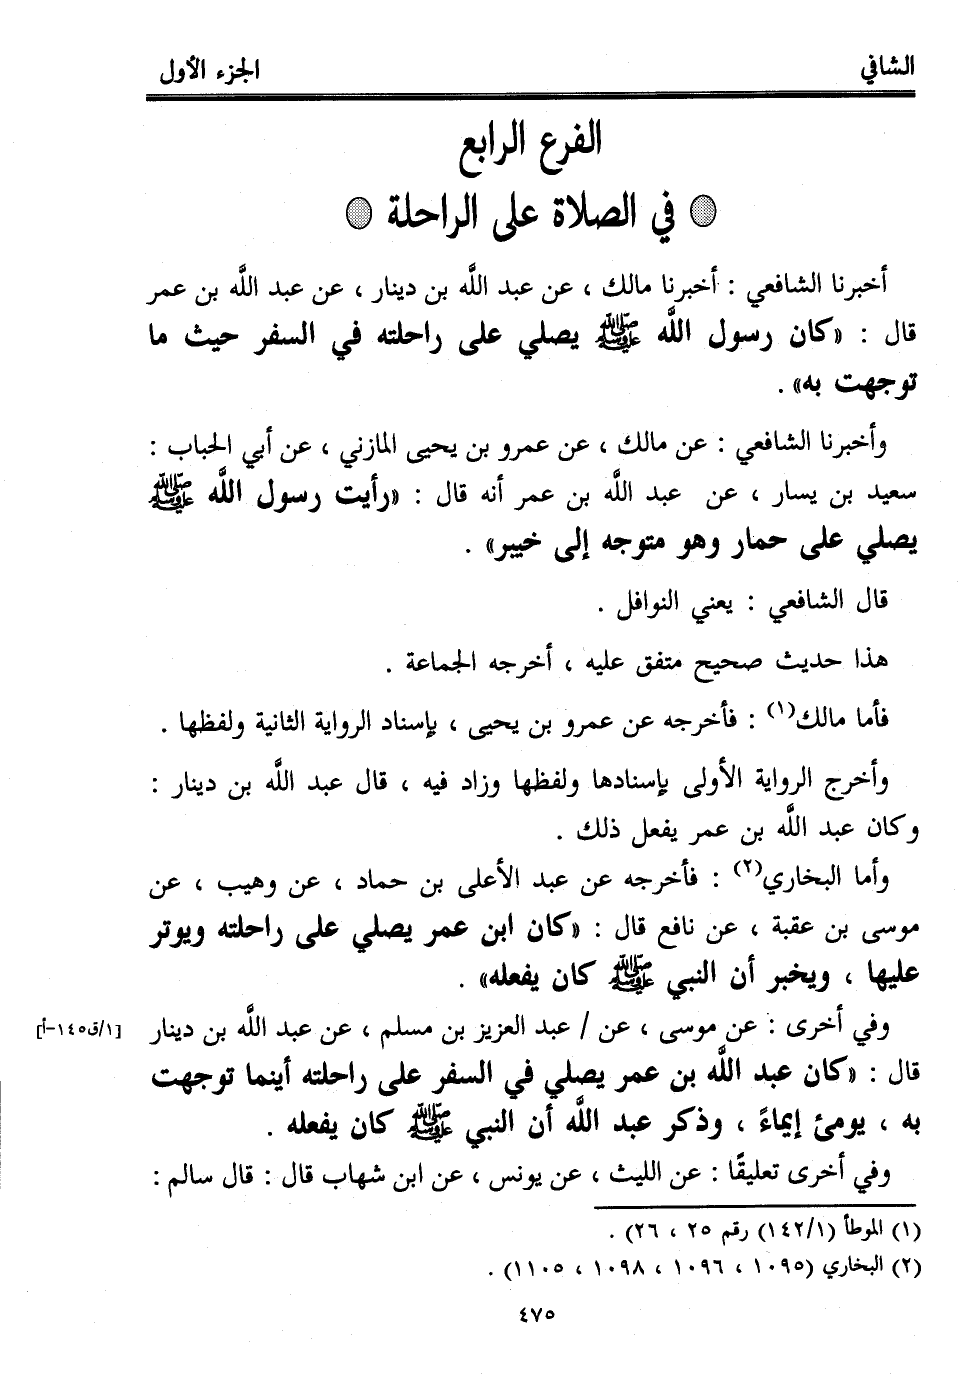 الشافي
الجزء الأول
الفرع الرابع
في الصلاة على الراحلة
أخبرنا الشافعي : أخبرنا مالك ، عن عبد اللَّه بن دينار ، عن عبد اللَّه بن عمر
قال : «كان رسول اللَّه ﷺ يصلي على راحلته في السفر حيث ما
توجهت به» .
وأخبرنا الشافعي : عن مالك ، عن عمرو بن يحيى المازني ، عن أبي الحباب :
سعيد بن يسار ، عن عبد اللَّه بن عمر أنه قال : «رأيت رسول اللَّه ﷺ
يصلي على حمار وهو متوجه إلى خيبر» .
قال الشافعي : يعني النوافل .
هذا حديث صحيح متفق عليه ، أخرجه الجماعة .
فأما مالك(١) : فأخرجه عن عمرو بن يحيى ، بإسناد الرواية الثانية ولفظها .
وأخرج الرواية الأولى بإسنادها ولفظها وزاد فيه ، قال عبد اللَّه بن دينار :
وكان عبد اللَّه بن عمر يفعل ذلك .
وأما البخاري(٢) : فأخرجه عن عبد الأعلى بن حماد ، عن وهيب ، عن
موسى بن عقبة ، عن نافع قال : «كان ابن عمر يصلي على راحلته ويوتر
عليها ، ويخبر أن النبي ﷺ كان يفعله» .
وفي أخرى : عن موسى ، عن / عبد العزيز بن مسلم ، عن عبد اللَّه بن دينار
[١/ق١٤٥-أ]
قال : «كان عبد اللَّه بن عمر يصلي في السفر على راحلته أينما توجهت
به ، يومئ إيماءً ، وذكر عبد اللَّه أن النبي ﷺ كان يفعله .
وفي أخرى تعليقًا : عن الليث ، عن يونس ، عن ابن شهاب قال : قال سالم :
(١) الموطأ (١٤٢/١) رقم ٢٥ ، ٢٦) .
(٢) البخاري (١٠٩٥ ، ١٠٩٦ ، ١٠٩٨ ، ١١٠٥) .
٤٧٥